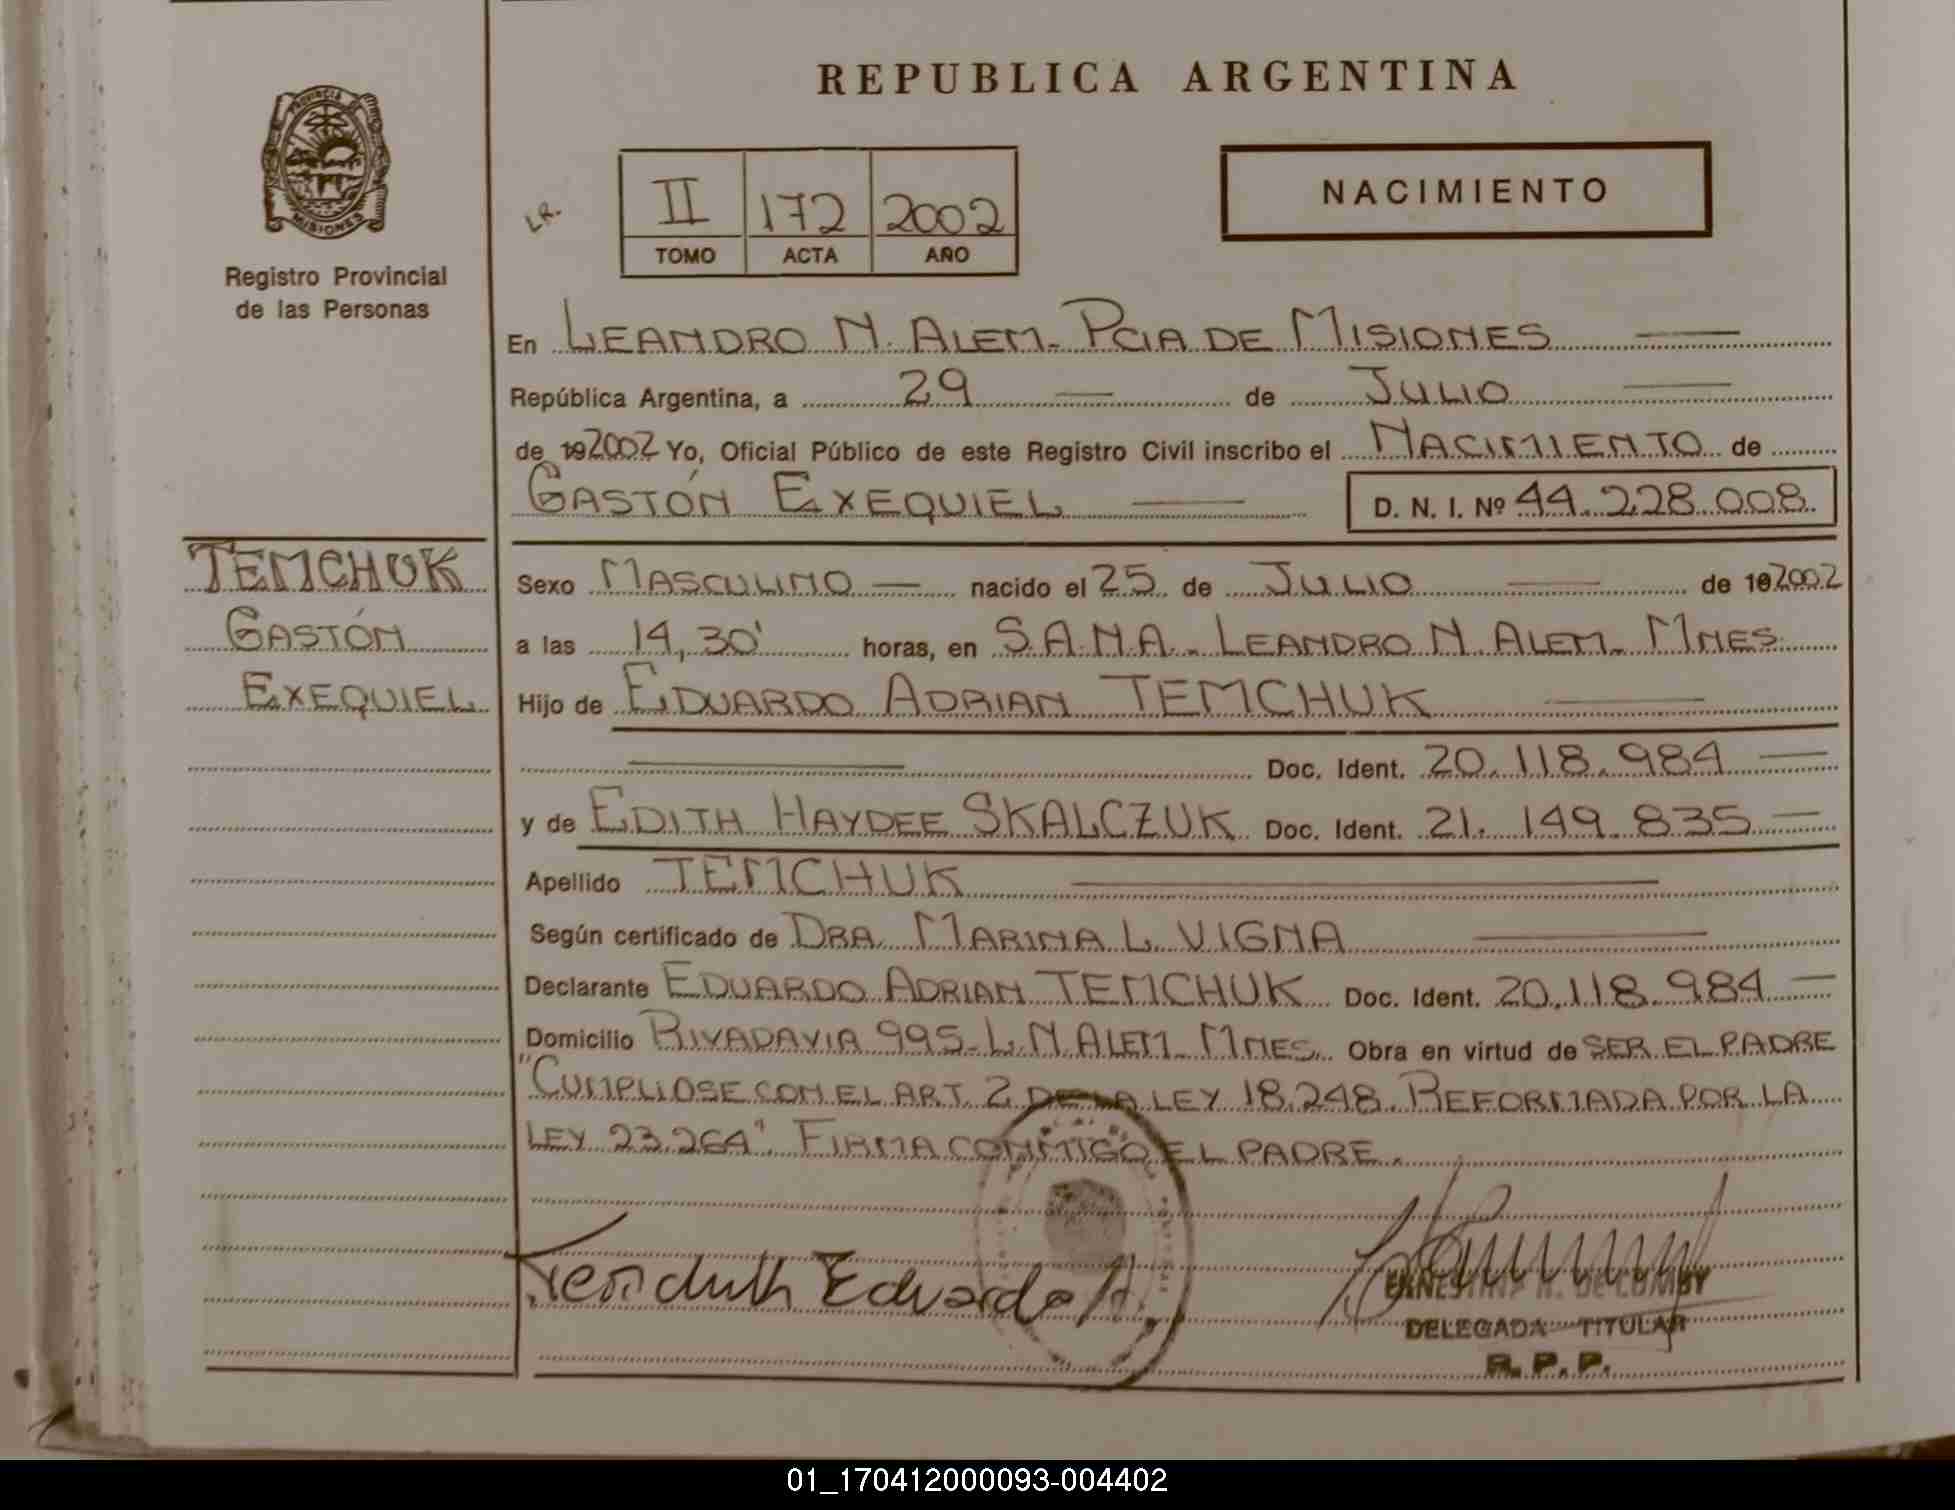 REPUBLICA ARGENTINA
PROVINCIA DE
MISIONES
Registro Provincial
de las Personas
L.R.
II 172 2002
TOMO ACTA AÑO
NACIMIENTO
En LEANDRO N. ALEM- PCIA DE MISIONES
República Argentina, a 29 de JULIO
de 192002 Yo, Oficial Público de este Registro Civil inscribo el NACIMIENTO de
GASTÓN EXEQUIEL D. N. I. Nº 44.228.008
TEMCHUK
GASTÓN
EXEQUIEL
Sexo MASCULINO nacido el 25 de JULIO de 192002
a las 14,30' horas, en S.A.N.A. - LEANDRO N. ALEM- MNES
Hijo de EDUARDO ADRIAN TEMCHUK
Doc. Ident. 20.118.984
y de EDITH HAYDEE SKALCZUK Doc. Ident. 21.149.835
Apellido TEMCHUK
Según certificado de DRA. MARINA L. VIGNA
Declarante EDUARDO ADRIAN TEMCHUK Doc. Ident. 20.118.984
Domicilio RIVADAVIA 995-L.N.ALEM- MNES Obra en virtud de SER EL PADRE
"CUMPLIOSE CON EL ART. 2 DE LA LEY 18.248. REFORMADA POR LA
LEY 23.264". FIRMA CONMIGO EL PADRE.
Temchuk Eduardo A.
DELEGADA TITULAR
R. P. P.
01_170412000093-004402